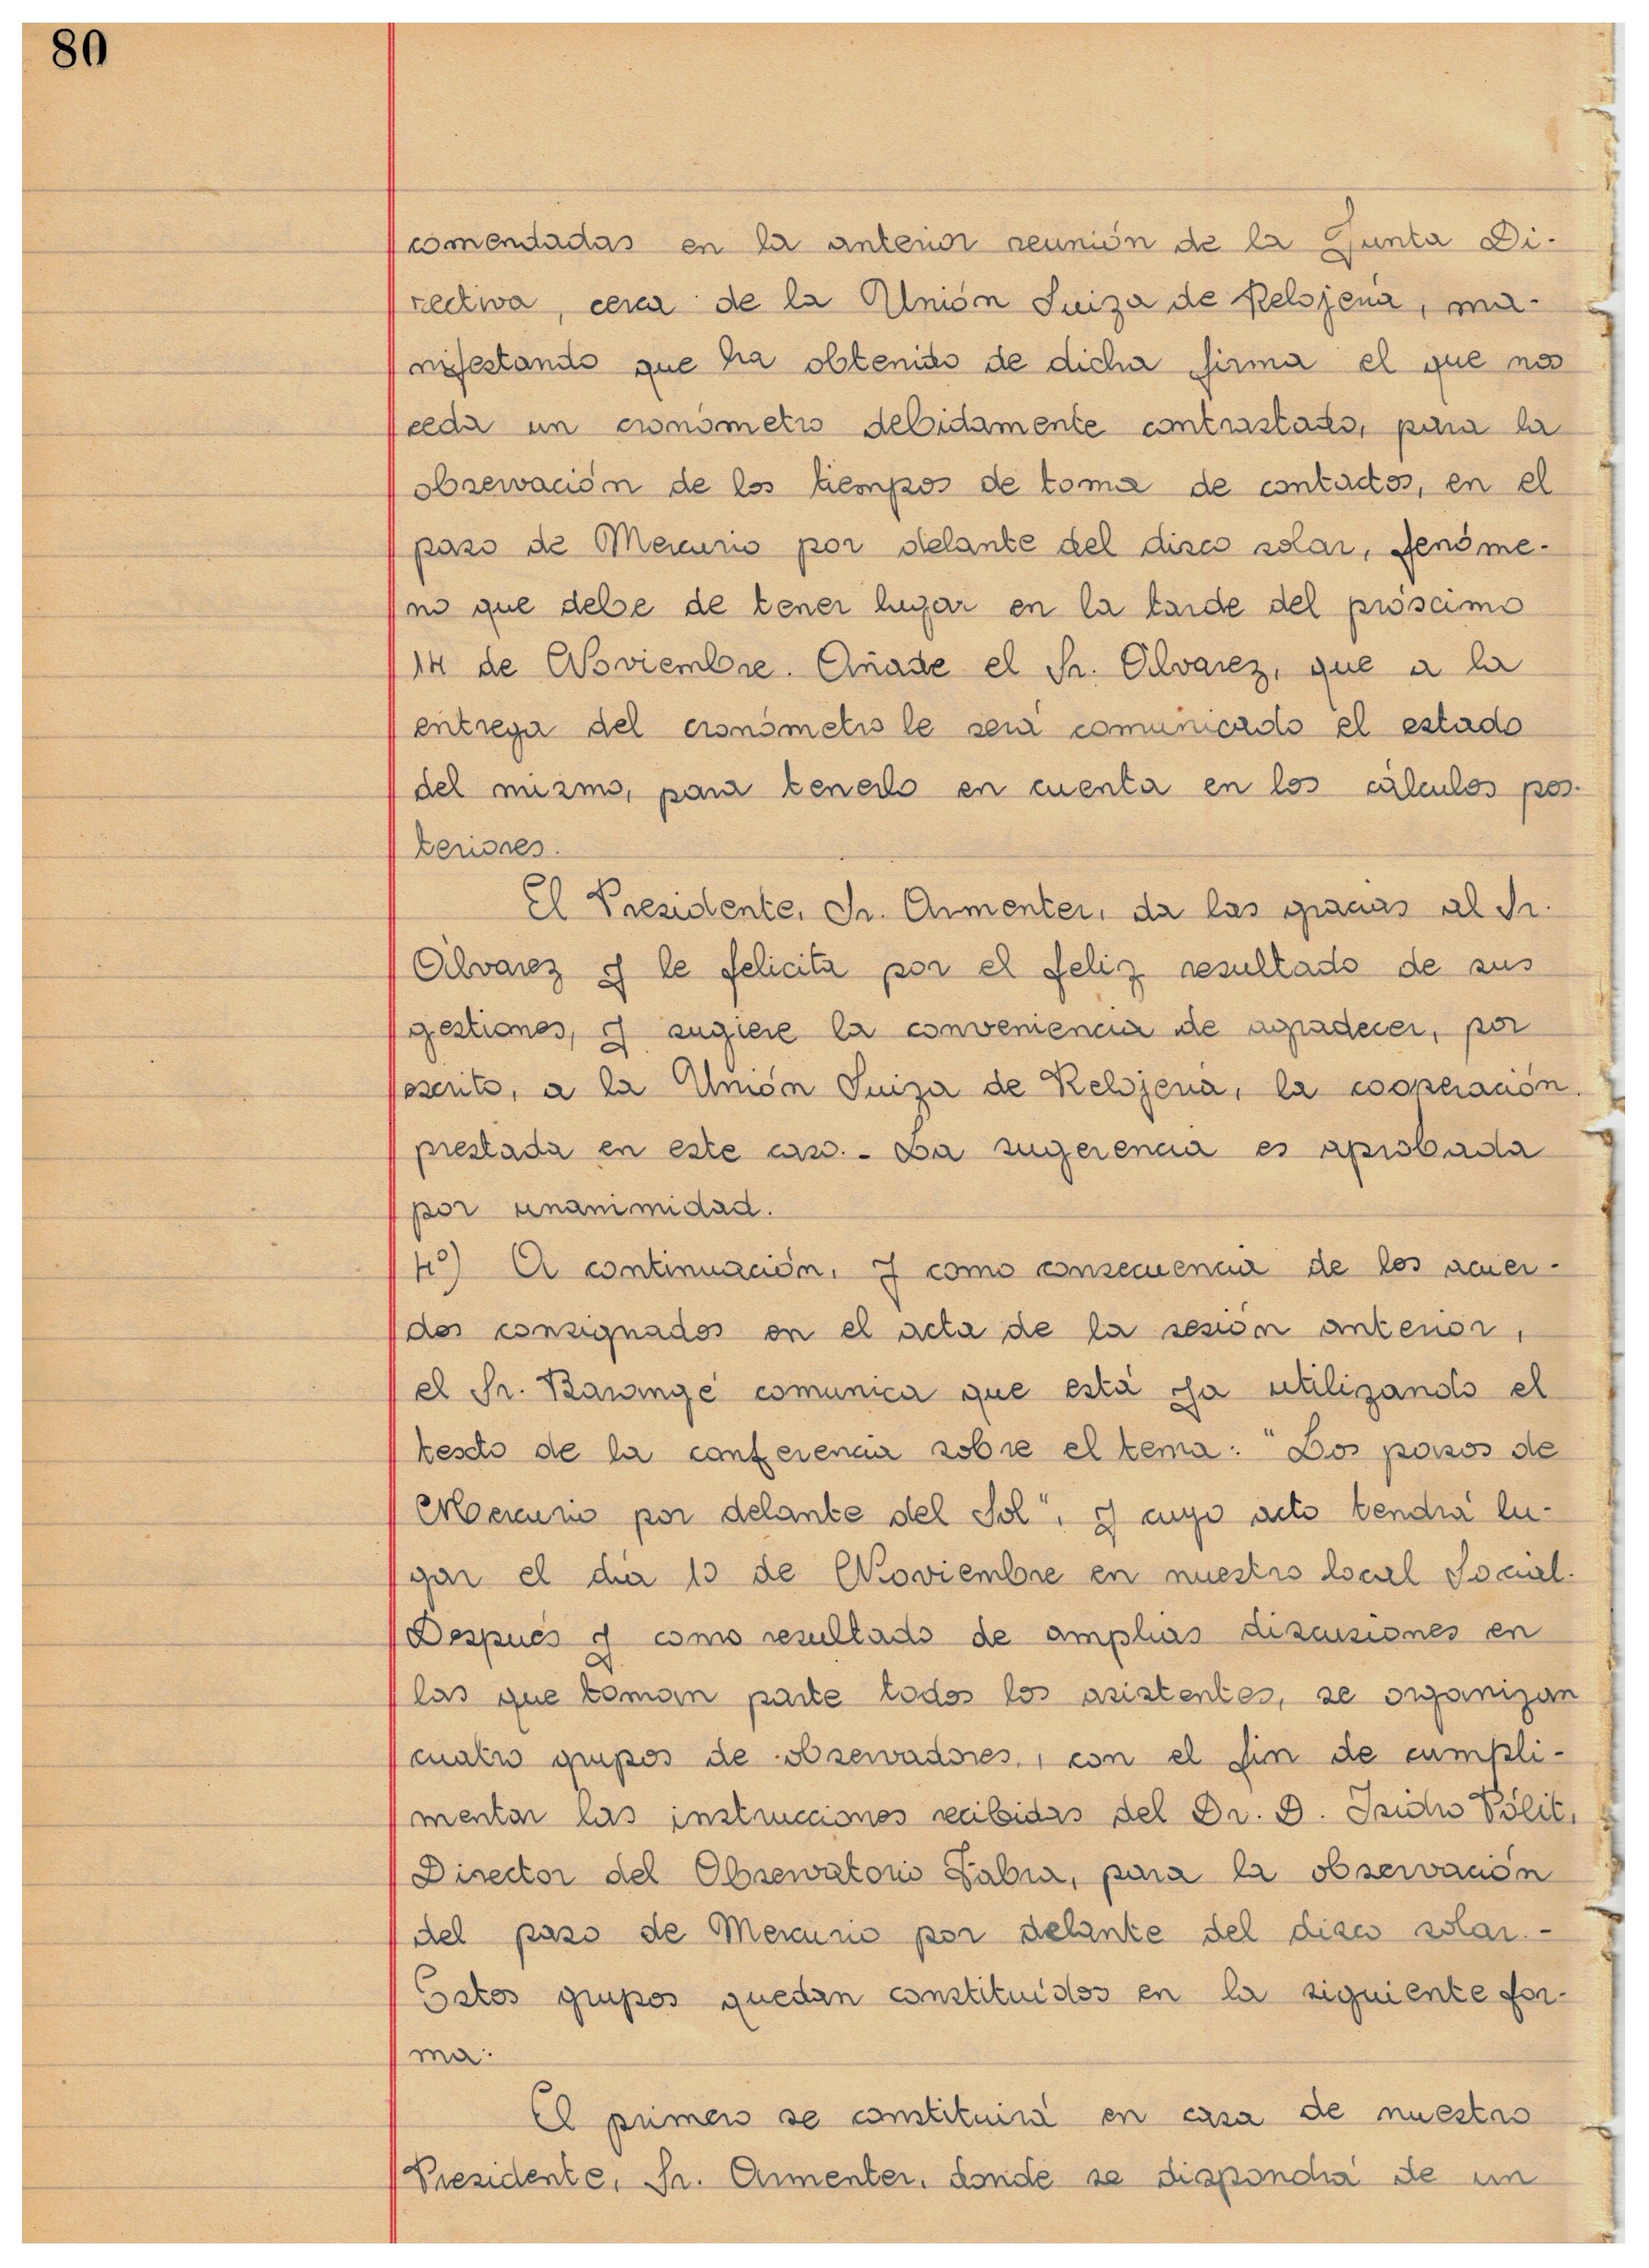 80
comendadas en la anterior reunión de la Junta Di-
rectiva, cerca de la Unión Suiza de Relojería, ma-
nifestando que ha obtenido de dicha firma el que nos
ceda un cronómetro debidamente contrastado, para la
observación de los tiempos de toma de contactos, en el
paso de Mercurio por delante del disco solar, fenóme-
no que debe de tener lugar en la tarde del próximo
14 de Noviembre. Añade el Sr. Alvarez, que a la
entrega del cronómetro le será comunicado el estado
del mismo, para tenerlo en cuenta en los cálculos pos-
teriores.
El Presidente, Sr. Armenter, da las gracias al Sr.
Alvarez y le felicita por el feliz resultado de sus
gestiones, y sugiere la conveniencia de agradecer, por
escrito, a la Unión Suiza de Relojería, la cooperación
prestada en este caso.- La sugerencia es aprobada
por unanimidad.
4º) A continuación, y como consecuencia de los acuer-
dos consignados en el acta de la sesión anterior,
el Sr. comunica que está ya utilizando el
texto de la conferencia sobre el tema: "Los pasos de
Mercurio por delante del Sol", y cuyo acto tendrá lu-
gar el día 10 de Noviembre en nuestro local Social.
Después y como resultado de amplias discusiones en
las que toman parte todos los asistentes, se organizan
cuatro grupos de observadores, con el fin de cumpli-
mentar las instrucciones recibidas del Dr. D. Isidro Pólit,
Director del Observatorio Fabra, para la observación
del paso de Mercurio por delante del disco solar.-
Estos grupos quedan constituídos en la siguiente for-
ma:
El primero se constituirá en casa de nuestro
Presidente, Sr. Armenter, donde se dispondrá de un